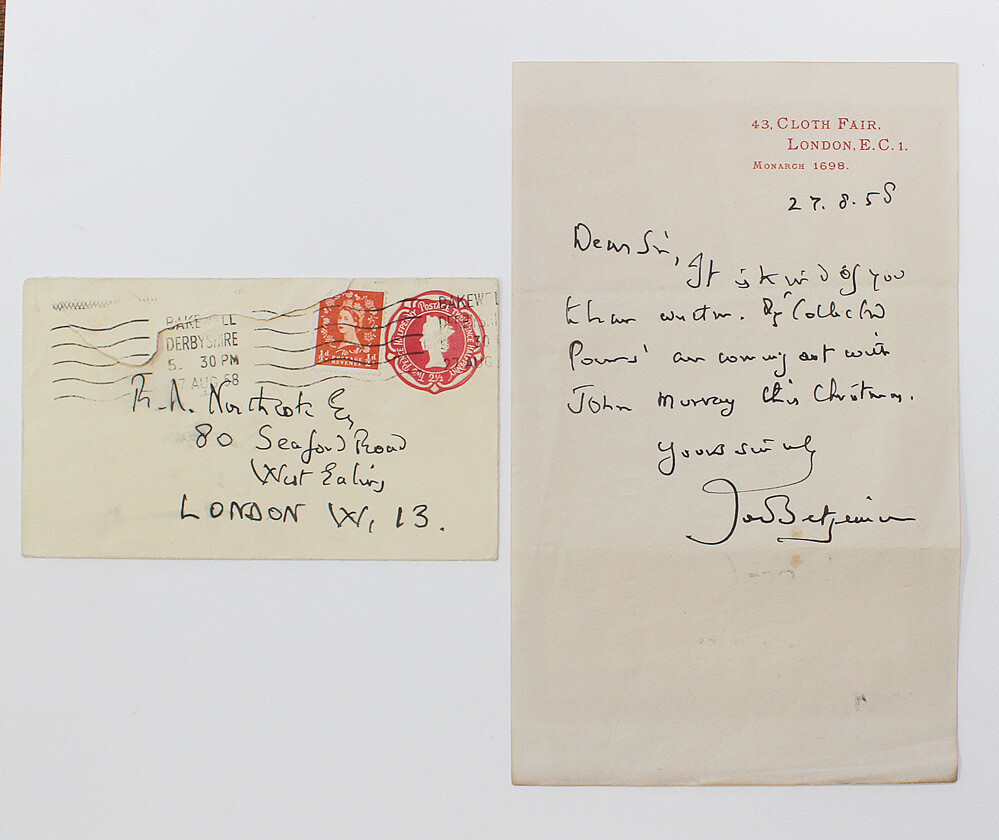 BAKEWELL
DERBYSHIRE
5. 30 PM
27 AUG 58
½d ½d
REVENUE
POSTAGE
2½
BAKEWELL
30
27 AUG
R. A. Northcote Esq
80 Seaford Road
West Ealing
LONDON W. 13.
43, CLOTH FAIR,
LONDON, E.C. 1.
MONARCH 1698.
27. 8. 58
Dear Sir,
It is kind of you
to have written. My 'Collected
Poems' are coming out with
John Murray this Christmas.
Yours sincerely
John Betjeman